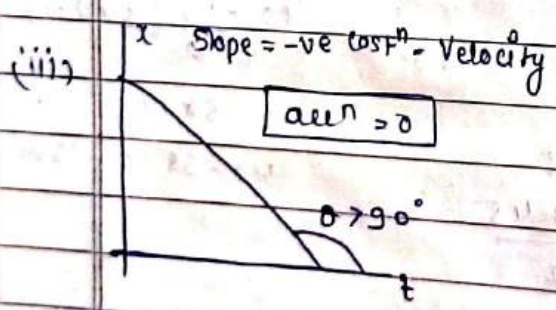 x Slope = -ve cost^n - Velocity
(iii)
acc^n = 0
θ > 90°
t